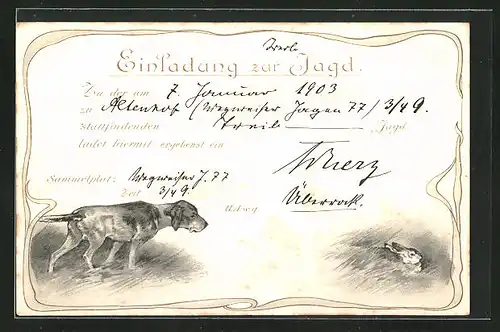 Einladung zur Jagd.
Zu der am 7. Januar 1903
zu Altenhof (Wegweiser Jagen 77) 3/4 9.
stattfindenden Treib Jagd
ladet hiermit ergebenst ein
Sammelplatz: Wegweiser J. 77
Zeit 3/4 9
Überrock.